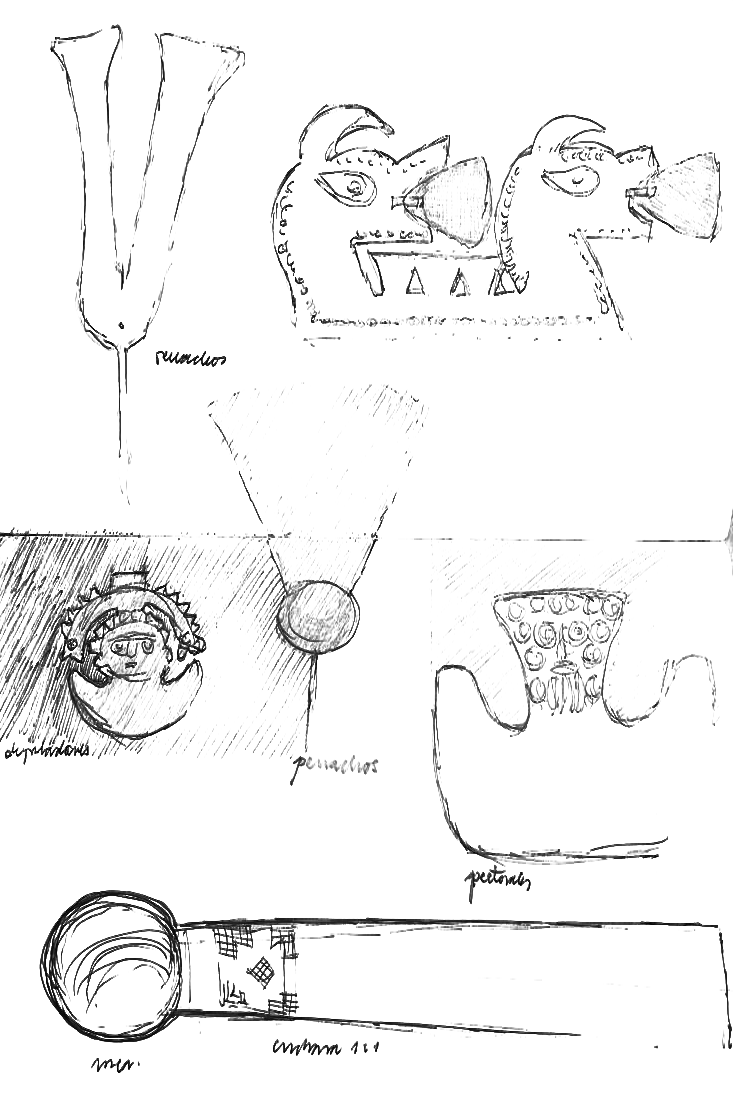 penachos
depiladores
penachos
pectorales
cuchara